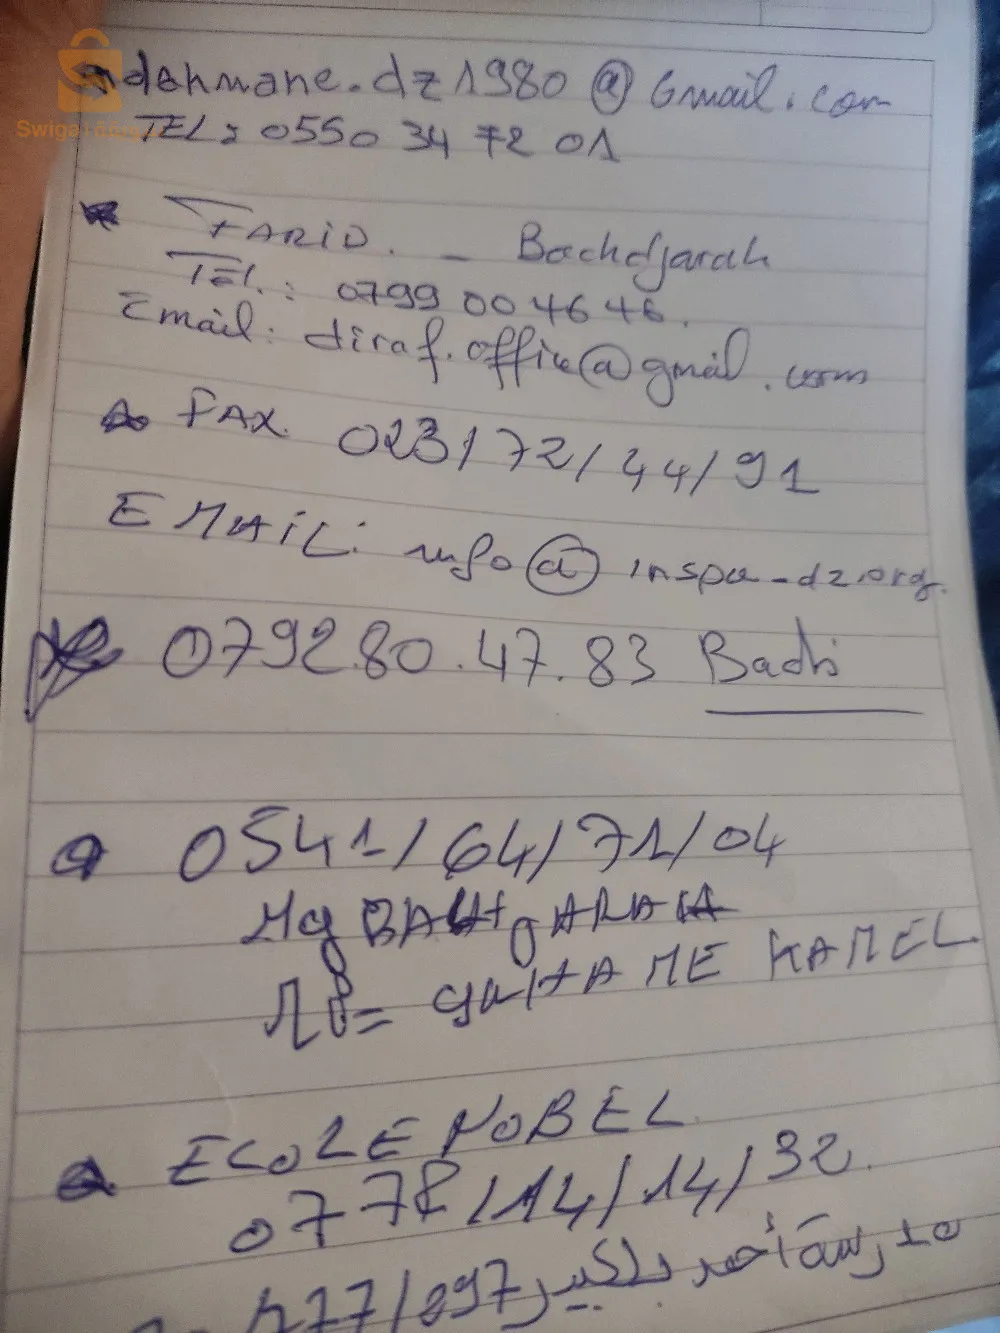 dahmane.dz1980@Gmail.com
TEL: 0550 34 72 01
FARID. - Bachdjarah
Tél.: 0799 00 46 46.
Email: diraf.office@gmail.com
FAX. 023/72/44/91
EMAIL: info@inspa-dz.org.
0792.80.47.83 Badi
0541/64/71/04
KAMEL
ECOLE NOBEL
0778/14/14/32.
مدرسة أحمد بلكبير